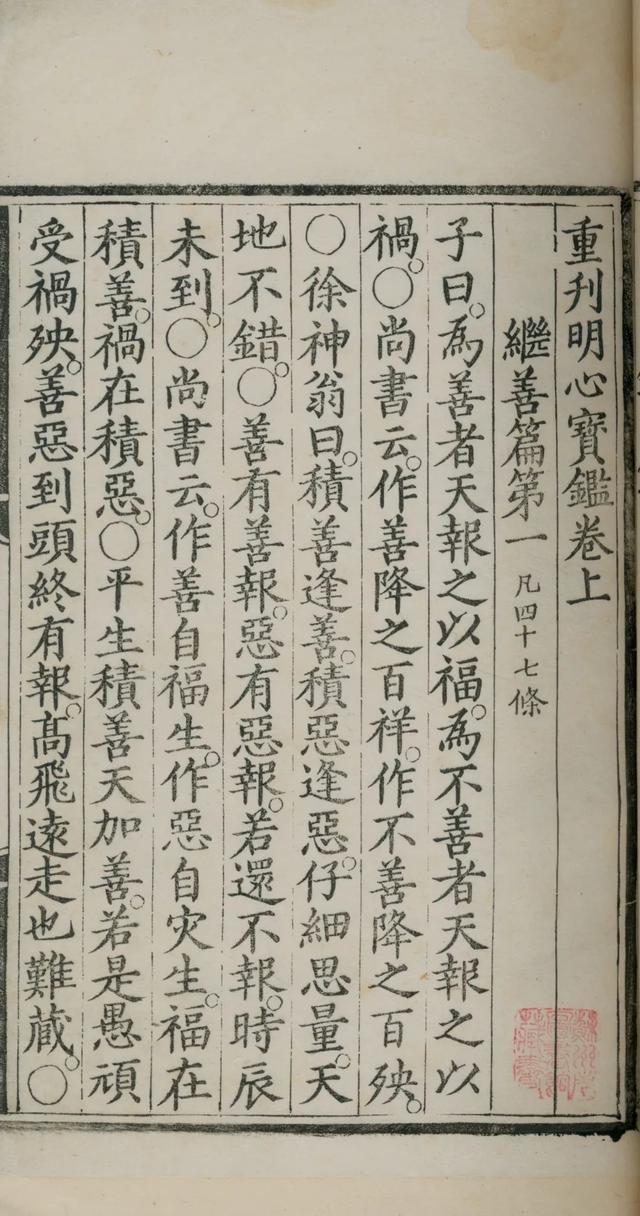 重刊明心寶鑑卷上
繼善篇第一 凡四十七條
子曰。為善者天報之以福。為不善者天報之以
禍。○尚書云。作善降之百祥。作不善降之百殃。
○徐神翁曰。積善逢善。積惡逢惡。仔細思量。天
地不錯。○善有善報。惡有惡報。若還不報。時辰
未到。○尚書云。作善自福生。作惡自灾生。福在
積善。禍在積惡。○平生積善天加善。若是愚頑
受禍殃。善惡到頭終有報。髙飛遠走也難藏。○